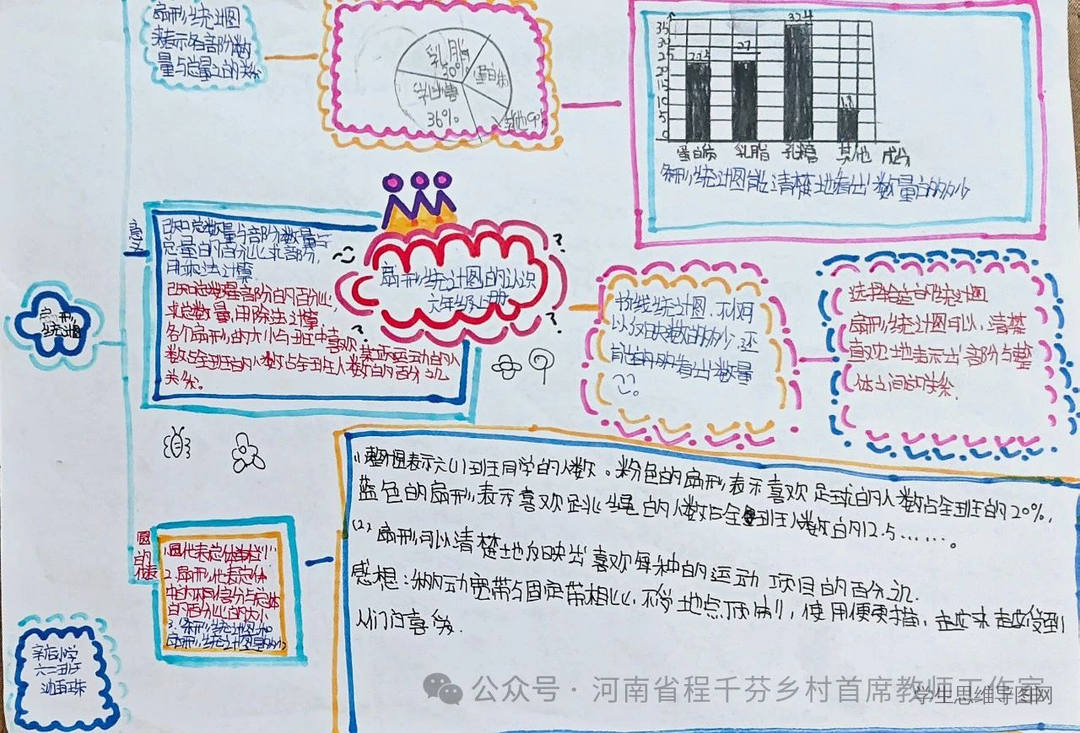 扇形统计图
来表示各部分数
量与总量之的关
乳脂
30%
蛋白质
乳糖
36%
其他9%
35
30
25
20
15
10
5
0
27
32.4
蛋白质 乳脂 乳糖 其他 成分
统计图能清楚地看出数量的多少
意义
已知总数量与部分数量占
总量的百分比求部分,
用乘法计算
求总数量,用除法计算
各个扇形的大小与班中喜欢某项运动的人
数占全班的人数占全班人数的百分比
关系。
扇形统计图的认识
六年级上册
扇形
统计图
折线统计图,不仅可
以反映数的多少,还
能看出数量
选择合适的统计图
扇形统计图可以,清楚
喜欢地表示出部分与整
体之间的关系.
圆的代表
1.圆代表总体单位"1"
2.扇形代表总体
中的不同部分占总体
的百分比的大小
3.条形统计图和
扇形统计图
(1)整个圆表示六(1)班同学的人数。粉色的扇形表示喜欢足球的人数占全班的20%,
蓝色的扇形表示喜欢跳绳的人数占全班人数的12.5……。
(2)扇形可以清楚地反映出喜欢每种的运动项目的百分比.
感想:移动宽带与固定带相比,不受地点限制,使用便捷,越来越受到
人们喜欢.
小学
六二班
公众号·河南省程千芬乡村首席教师工作室
学生思维导图网